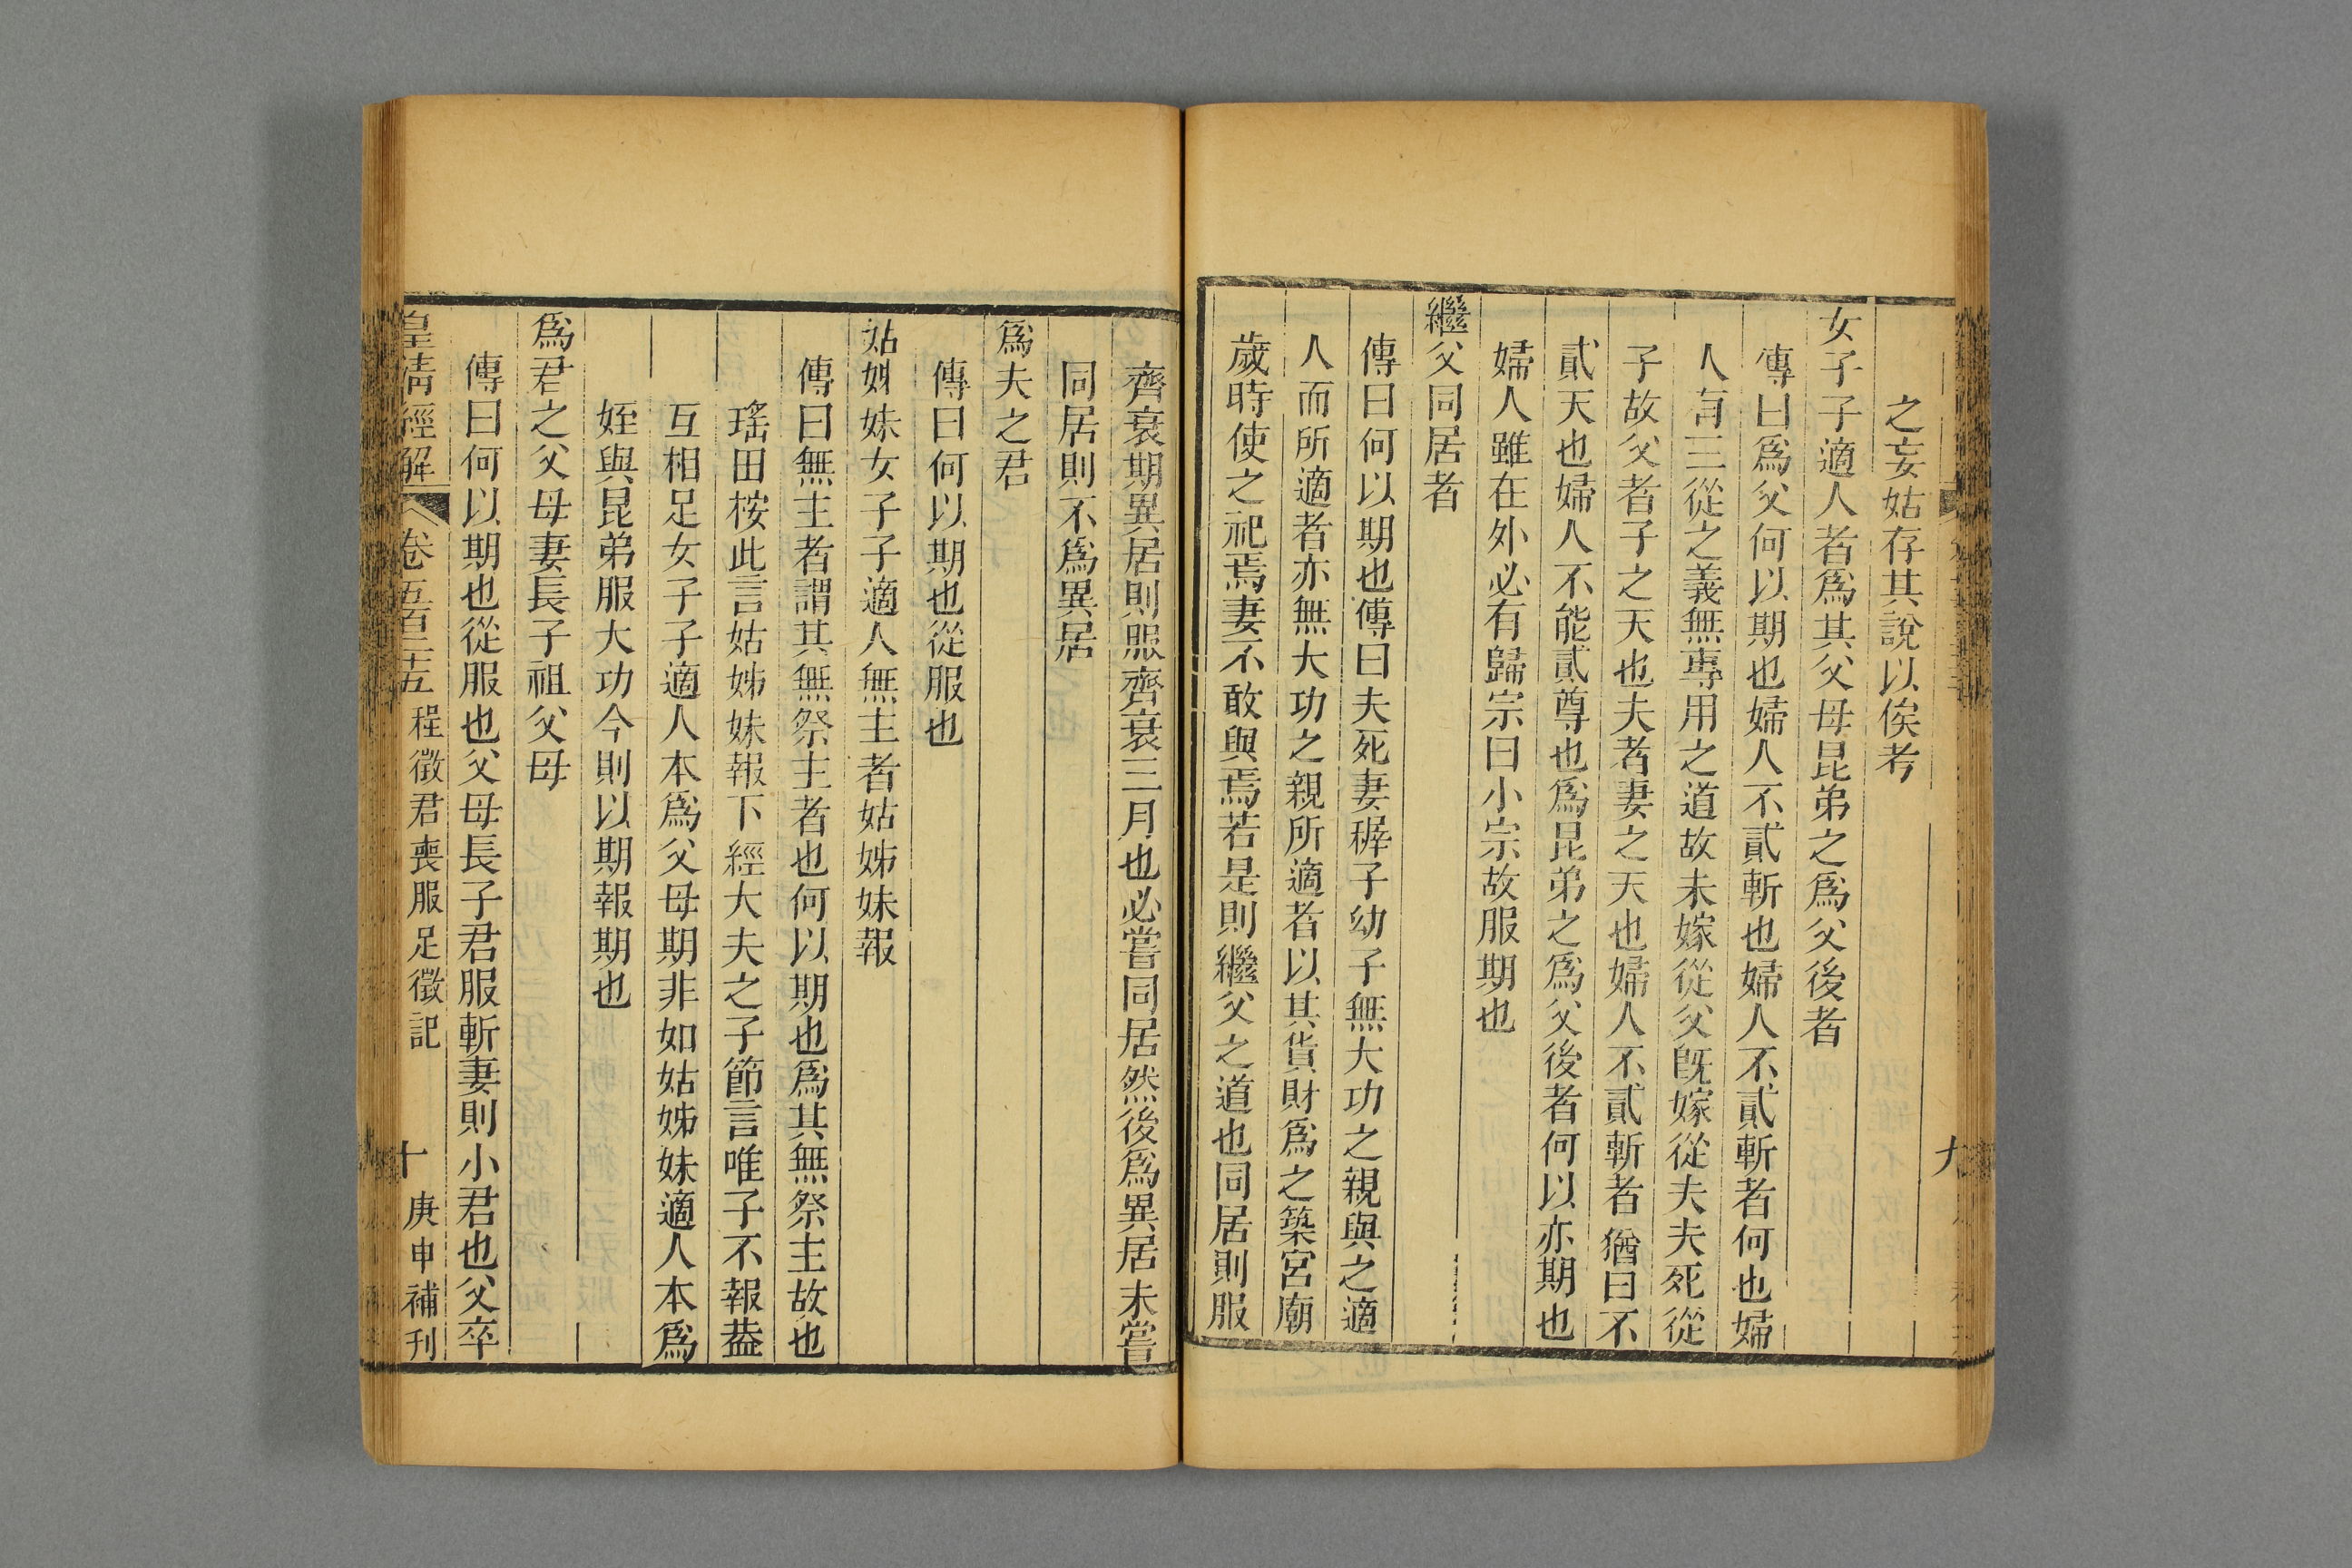 之妄姑存其說以俟考
女子子適人者爲其父母昆弟之爲父後者
傳曰爲父何以期也婦人不貳斬也婦人不貳斬者何也婦
人有三從之義無專用之道故未嫁從父旣嫁從夫夫死從
子故父者子之天也夫者妻之天也婦人不貳斬者猶曰不
貳天也婦人不能貳尊也爲昆弟之爲父後者何以亦期也
婦人雖在外必有歸宗曰小宗故服期也
繼父同居者
傳曰何以期也傳曰夫死妻穉子幼子無大功之親與之適
人而所適者亦無大功之親所適者以其貨財爲之築宮廟
歲時使之祀焉妻不敢與焉若是則繼父之道也同居則服
齊衰期異居則服齊衰三月也必嘗同居然後爲異居未嘗
同居則不爲異居
爲夫之君
傳曰何以期也從服也
姑姊妹女子子適人無主者姑姊妹報
傳曰無主者謂其無祭主者也何以期也爲其無祭主故也
瑤田桉此言姑姊妹報下經大夫之子節言唯子不報葢
互相足女子子適人本爲父母期非如姑姊妹適人本爲
姪與昆弟服大功今則以期報期也
爲君之父母妻長子祖父母
傳曰何以期也從服也父母長子君服斬妻則小君也父卒
皇清經解 卷五百二十五 程徵君喪服足徵記 十 庚申補刊
九